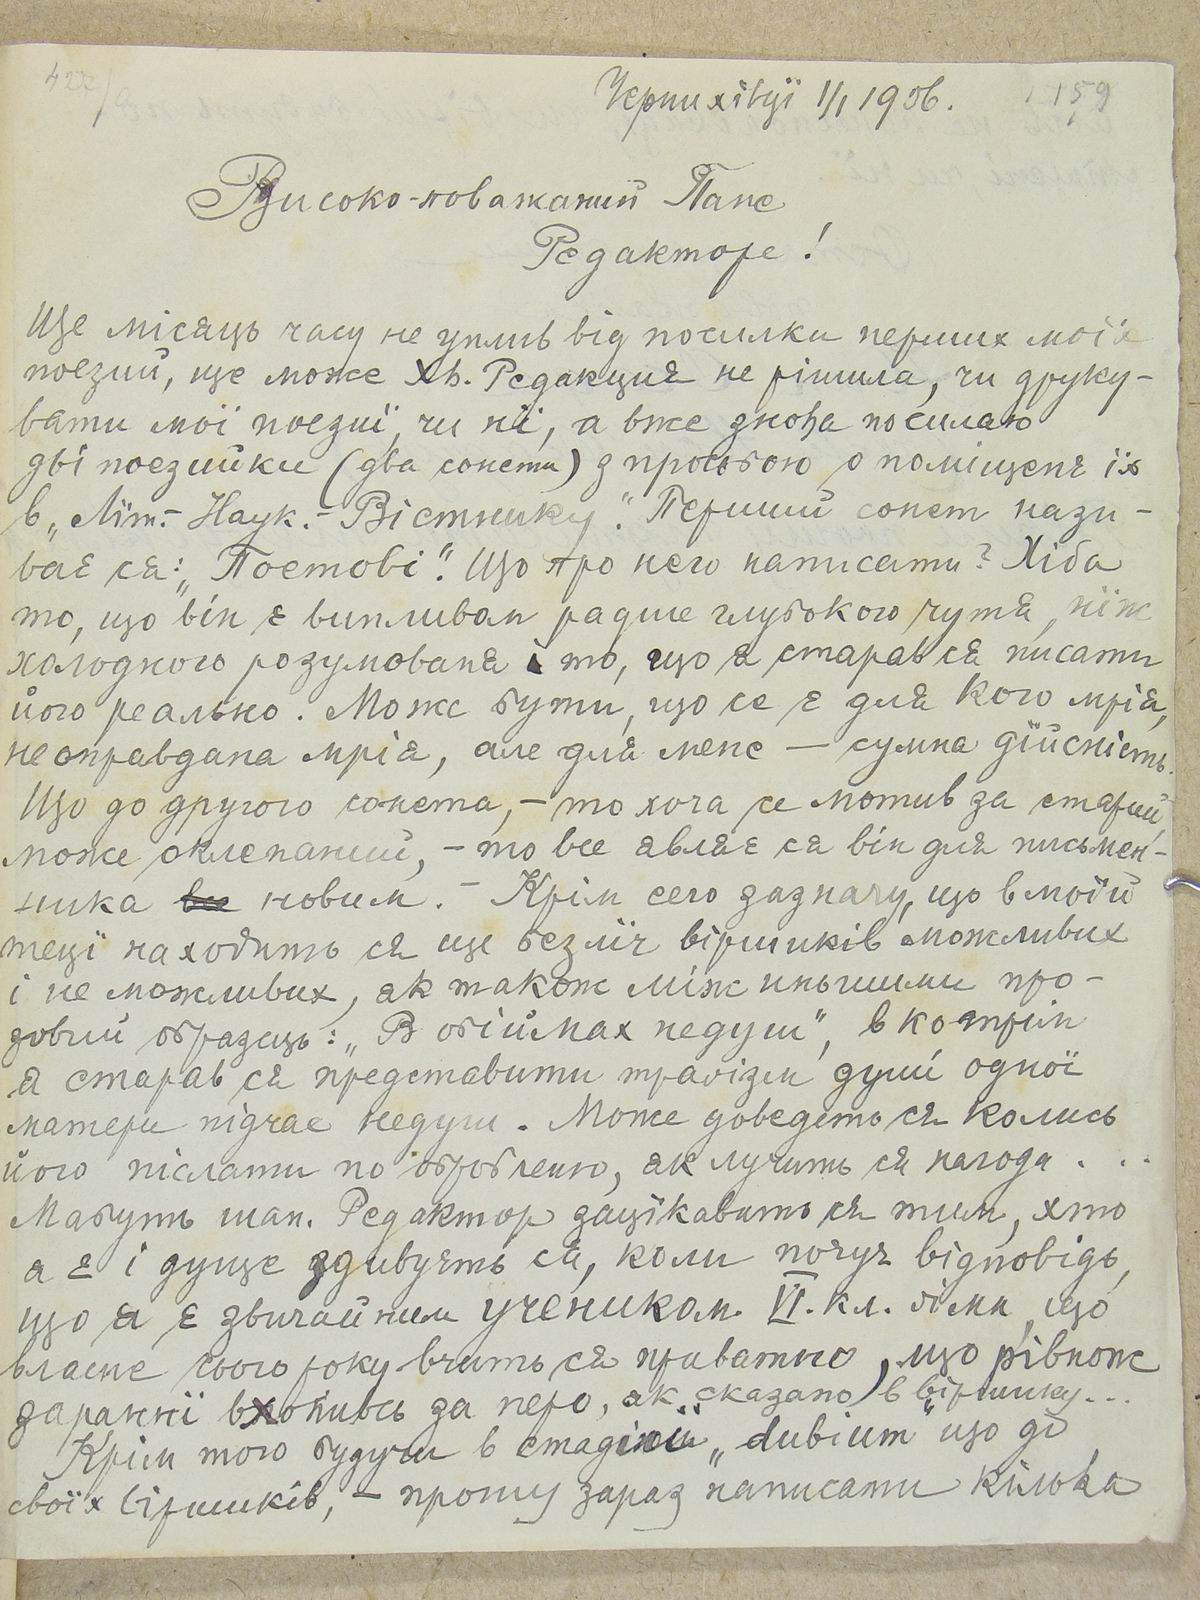 427/9
Чернихівцї 1/I 1906. 159
Високо-поважаний Пане
Редакторе!
Ще місяць часу не уплив від посилки перших моїх
поезий, ще може Хв. Редакция не рішила, чи друку-
вати мої поезиї, чи нї, а вже знова посилаю
дві поезийки (два сонети) з просьбою о поміщенє їх
в „Лїт.- Наук.- Вістнику". Перший сонет нази-
ває ся: „Поетові". Що про него написати? Хіба
то, що він є випливом радше глубокого чутя, нїж
холодного розумованя і то, що я старав ся писати
його реально. Може бути, що се є для кого мрія,
неоправдана мрія, але для мене — сумна дїйсність.
Що до другого сонета, – то хоча се мотив за старий,
може оклепаний, – то все являє ся він для письмен-
ника новим. – Крім сего зазначу, що в моїй
тецї находить ся ще безлїч віршиків можливих
і не можливих, як також між иньшими про-
зовий образець: „В обіймах недуги", в котрім
я старав ся представити трагізм душі одної
матери підчас недуги. Може доведеть ся колись
його післати по обробленю, як лучить ся нагода . . .
Мабуть шан. Редактор зацїкавить ся тим, хто
я є і дуще здивуєть ся, коли почує відповідь,
що я є звичайним учеником VI. кл. ґімн, що
власне сього року вчить ся приватно, що рівнож
заранї вхопивсь за перо, як „сказано" в віршику...
Крім того будучи в стадиї „dubium" що до
своїх віршиків, – прошу зараз написати кілька